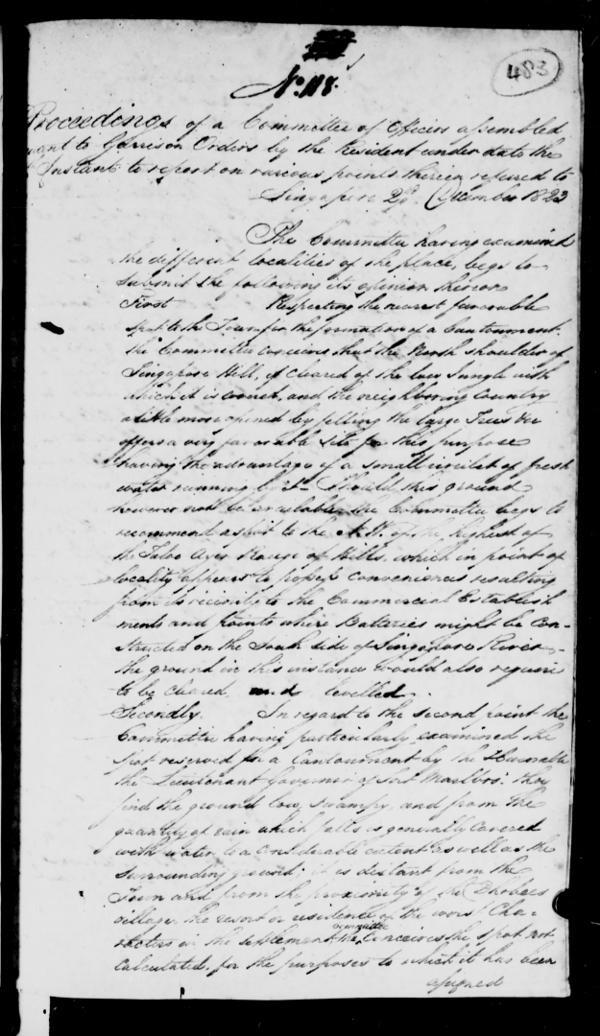 483
No. 118.
Proceedings of a Committee of Officers assembled
to Garrison Orders by the Resident under date the
Instant to report on various points therein refered to
Singapore 29 December 1823
The Committee having examined
the different localities of the place, begs to
submit the following its opinion thereon
First Respecting the nearest favorable
spot to the Town for the formation of a Cantonment.
the Committee conceives that the North shoulder of
Singapore Hill, if cleared of the low Jungle with
which it is covered, and the neighboring Country
a little more opened by felling the large Trees
offers a very favorable Site for this purpose
having the advantage of a small rivulet of fresh
water running by it - Should this ground
however not be available the Committee begs to
recommend a spot to the N.W. of the highest of
the Taloe Ayer Range of Hills, which in point of
locality appears to possess conveniences resulting
from its vicinity to the Commercial Establish
ments and points where Batteries might be Con-
structed on the South side of Singapore River -
the ground in this instance would also require
to be cleared and levelled.
Secondly. In regard to the second point the
Committee having particularly examined the
spot reserved for a Cantonment by the Honorable
the Lieutenant Governor of Fort Marlbro: they
find the ground low, swampy, and from the
quantity of rain which falls is generally covered
with water to a considerable extent as well as the
surrounding ground; it is distant from the
Town and from the proximity of the Dhobees
village the resort or residence of the worst Cha-
racters in the settlement the Committee conceives the spot not
calculated for the purposes to which it has been
assigned